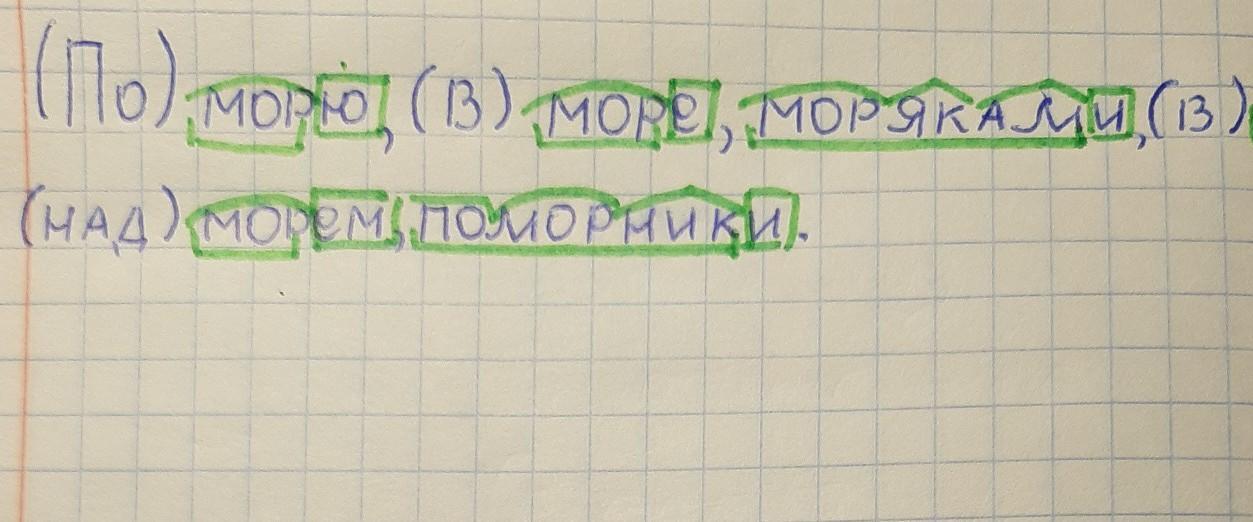 (По) морю, (в) море, моряками, (в)
(над) морем, поморники.